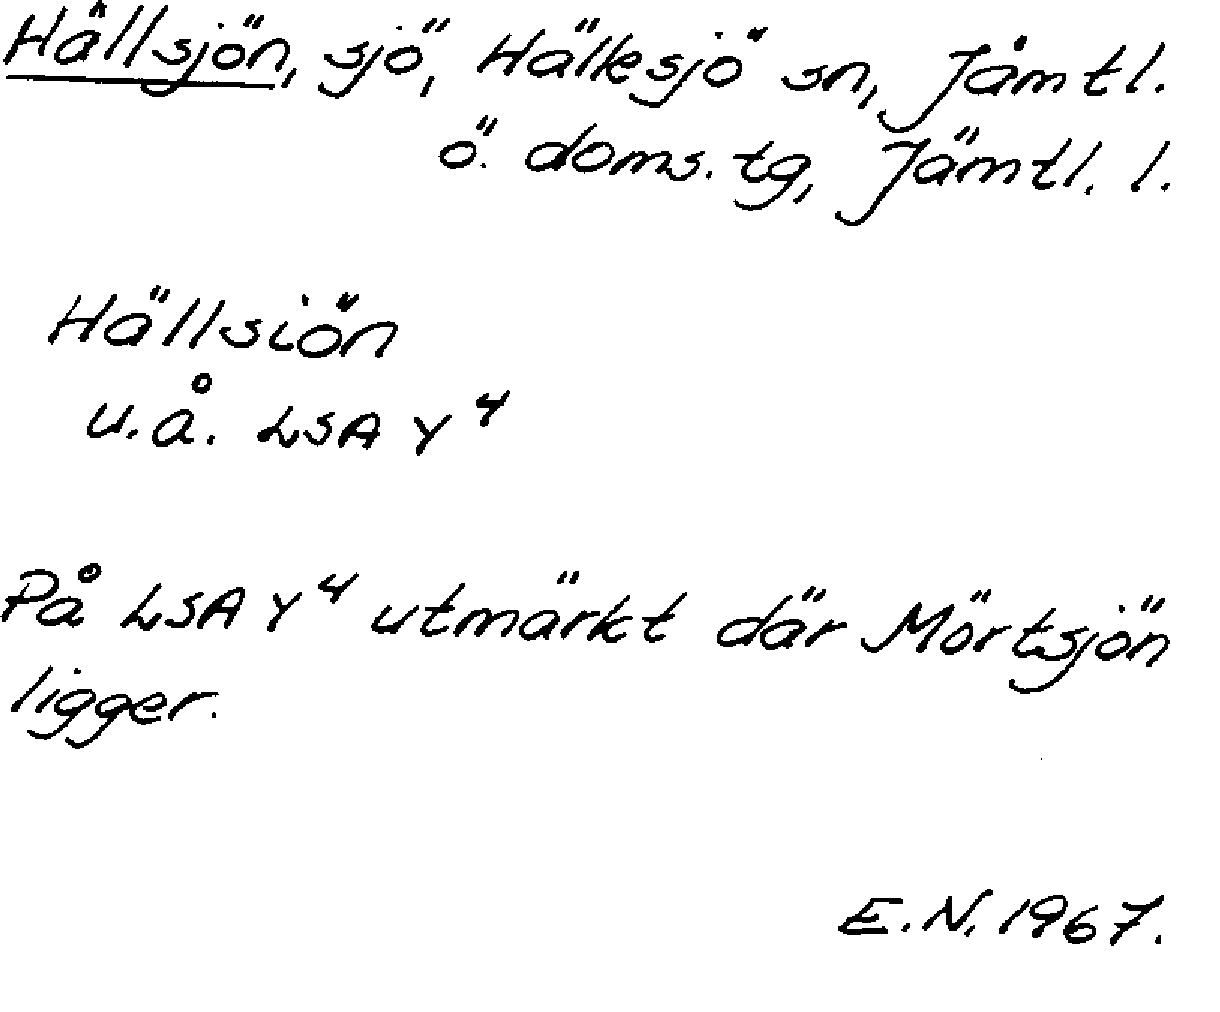 Hällsjön, sjö, Hällesjö sn, Jämtl.
ö. doms. tg, Jämtl. l.
Hällsiön
u.å. LSA Y⁴
På LSA Y⁴ utmärkt där Mörtsjön
ligger.
E.N. 1967.